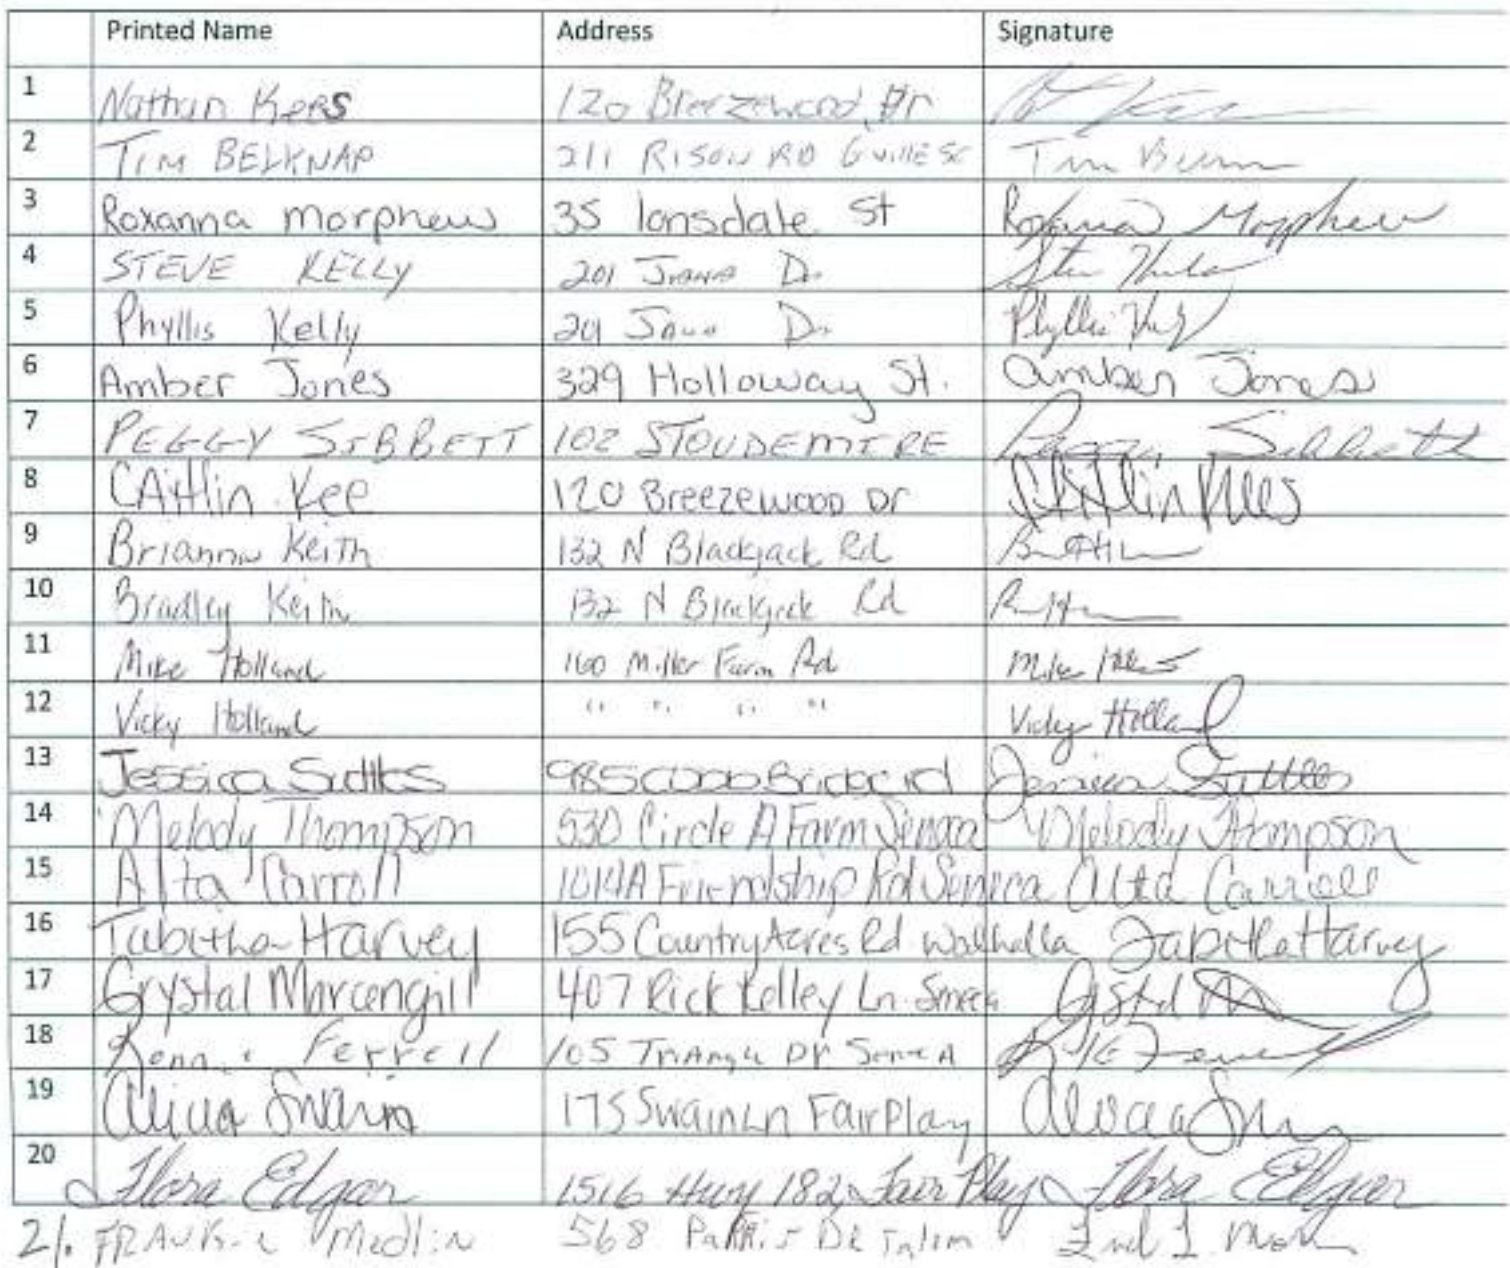 Printed Name Address Signature
1 Nathan Kees 120 Breezewood Dr
2 TIM BELKNAP 211 RISON RD GVILLE SC Tim
3 Roxanna morphew 35 lonsdale St Roxanna Morphew
4 STEVE KELLY 201 Dr Steve
5 Phyllis Kelly 201 Dr Phyllis
6 Amber Jones 329 Holloway St. Amber Jones
7 PEGGY SIBBETT 102 STOUDEMIRE Peggy Sibbett
8 CAitlin Kee 120 Breezewood Dr Caitlin Kees
9 Brianna Keith 132 N Blackjack Rd
10 Bradley Keith 132 N Blackjack Rd
11 Mike Holland 160 Miller Farm Rd Mike
12 Vicky Holland " " " " Vicky Holland
13 Jessica Suttles 985 Cobb Bridge rd Jessica Suttles
14 Melody Thompson 530 Circle A Farm Seneca Melody Thompson
15 Alta Carroll 1014A Friendship Rd Seneca Alta Carroll
16 Tabitha Harvey 155 Country Acres Rd Walhalla Tabitha Harvey
17 Crystal Marcengill 407 Rick Kelley Ln. Seneca
18 Ferrell 105 Dr Seneca
19 Alicia Swain 175 Swain Ln Fair Play Alicia
20 Flora Edgar 1516 Hwy 182 Fair Play Flora Edgar
21. Medlin 568 Dr